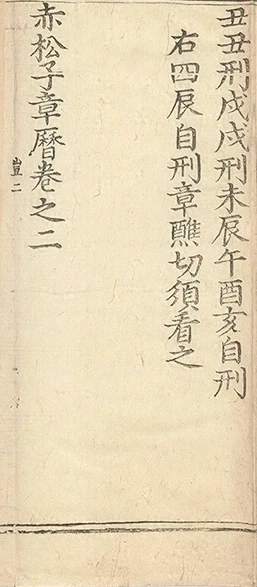 丑丑刑戌戌刑未辰午酉亥自刑
右四辰自刑章醮切須看之
赤松子章曆卷之二
豈二